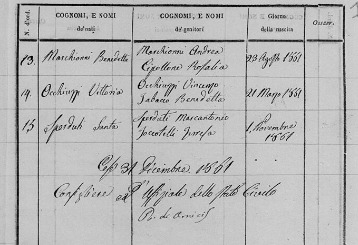 N. d'ord.
COGNOMI, E NOMI
de' nati
COGNOMI, E NOMI
de' genitori
Giorno
della nascita
Osserv.
13. Marchionni Benedetta Marchionni Andrea
Cipollone Rosalia 23 Agosto 1861
14. Occhiuzzi Vittoria Occhiuzzi Vincenzo
Benedetta 21 Marzo 1861
15 Sperduti Santa Sperduti Marcantonio
Teresa 1 Novembre
1861
31 Dicembre 1861
Consigliere Uffiziale dello Stato Civile